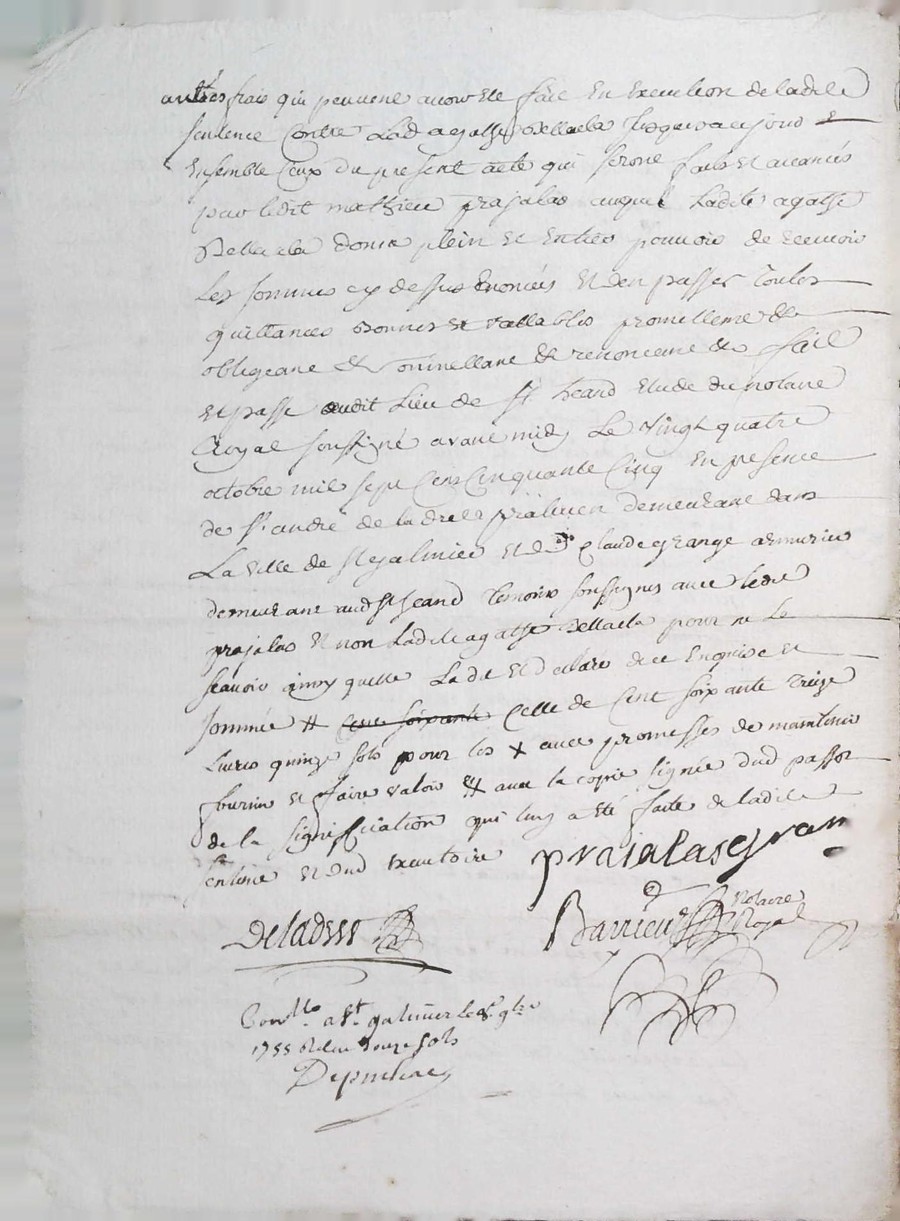 autres frais qui peuvent avoir ete fait en execution de ladite
sentence contre lad agathe Dellaela jusques aujourd et
ensemble ceux du present acte qui seront faits et avancés
par ledit mathieu prajalas auquel Ladite agathe
Dellaela donne plein et entier pouvoir de recevoir
Les sommes cy dessus enoncées et den passer toutes
quittances bonnes et vallables promettent &
obligeant & soumettant & renonceant & fait
et passé audit Lieu de St heand etude du notaire
Royal soussigné avant midy Le vingt quatre
octobre mil sept cens cinquante cinq en presence
de Sr. andré de la praticien demeurant dans
La ville de St galmier et de Sr claude grange armurier
demeurant aud St heand temoins soussignés avec ledit
prajalas et non Ladite agathe Dellaela pour ne le
scavoir ainsy quelle La dit et declaré de ce enquise et
sommée # cent soixante celle de cent soixante treize
Livres quinze sols pour les x avec promesses de maintenir
fournir et faire valoir # avec la copie signée dud passot
de la signiffication qui luy a eté faite de ladite
sentence et dud executoire prajalas gran
Deladret Barrieu notaire
Royal
Con.lle a St. galmier le 8e. 9bre
1755 Reçu douze sols